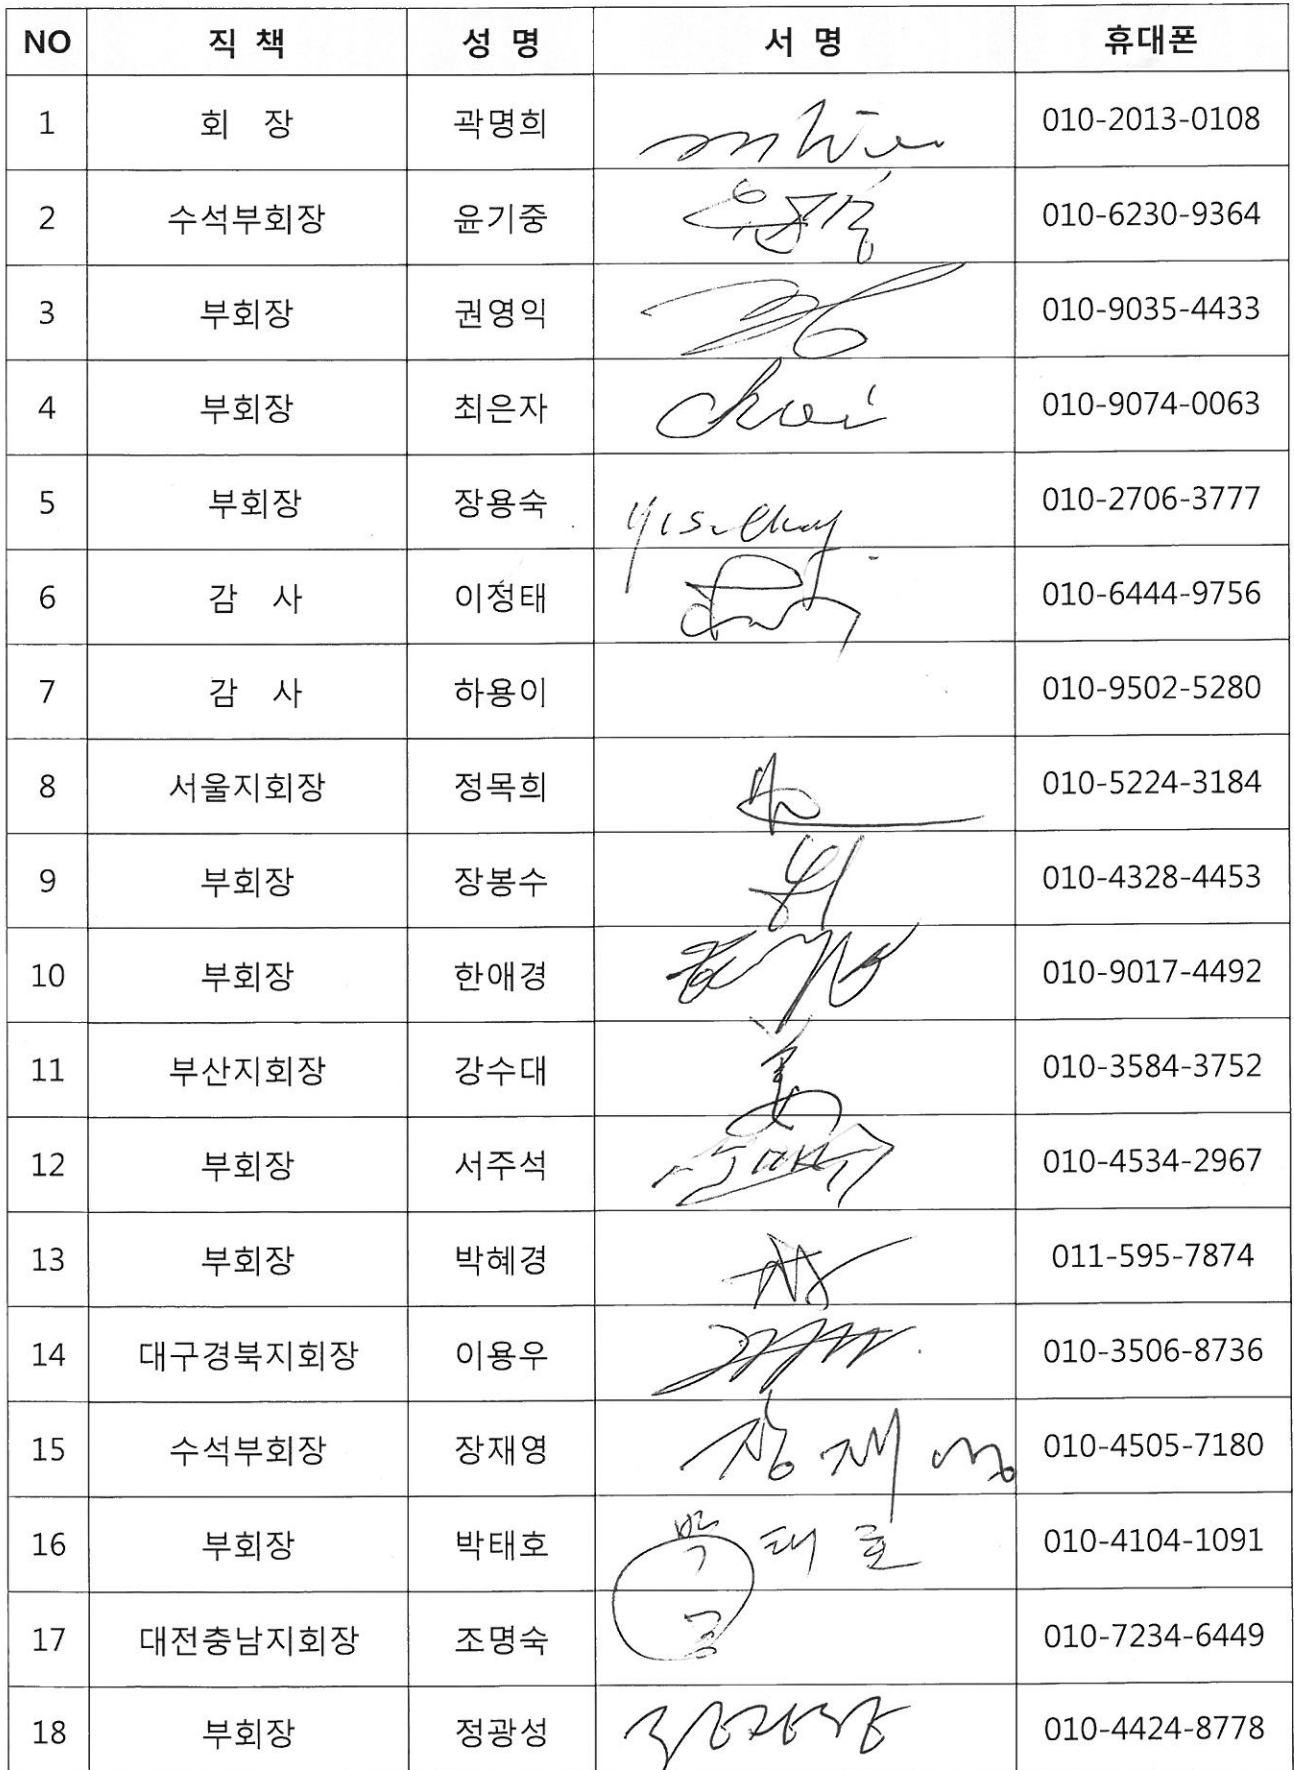 NO 직 책 성 명 서 명 휴대폰
1 회 장 곽명희 010-2013-0108
2 수석부회장 윤기중 010-6230-9364
3 부회장 권영익 010-9035-4433
4 부회장 최은자 Choi 010-9074-0063
5 부회장 장용숙 010-2706-3777
6 감 사 이정태 010-6444-9756
7 감 사 하용이 010-9502-5280
8 서울지회장 정목희 010-5224-3184
9 부회장 장봉수 010-4328-4453
10 부회장 한애경 010-9017-4492
11 부산지회장 강수대 010-3584-3752
12 부회장 서주석 010-4534-2967
13 부회장 박혜경 011-595-7874
14 대구경북지회장 이용우 010-3506-8736
15 수석부회장 장재영 장재영 010-4505-7180
16 부회장 박태호 박태호 010-4104-1091
17 대전충남지회장 조명숙 010-7234-6449
18 부회장 정광성 010-4424-8778